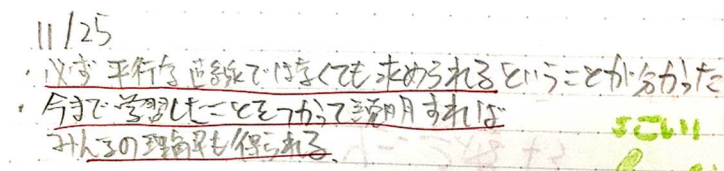 11/25
・必ず平行な直線ではなくても求められるということが分かった
・今まで学習したことをつかって説明すれば
みんなの理解も得られる。
すごい!!